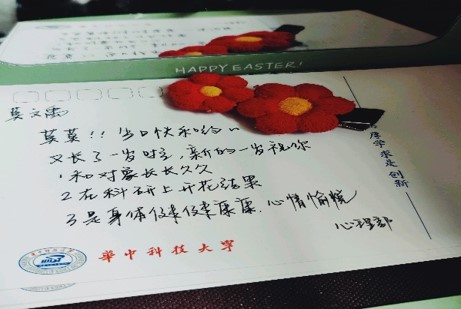 HAPPY EASTER!
莫文雨
莫莫!!生日快乐哟~
又长了一岁时言,新的一岁祝你
1和对象长长久久
2在科研上开花结果
3是身体健健康康,心情愉悦
心理部
厚学 求是 创新
华中科技大学